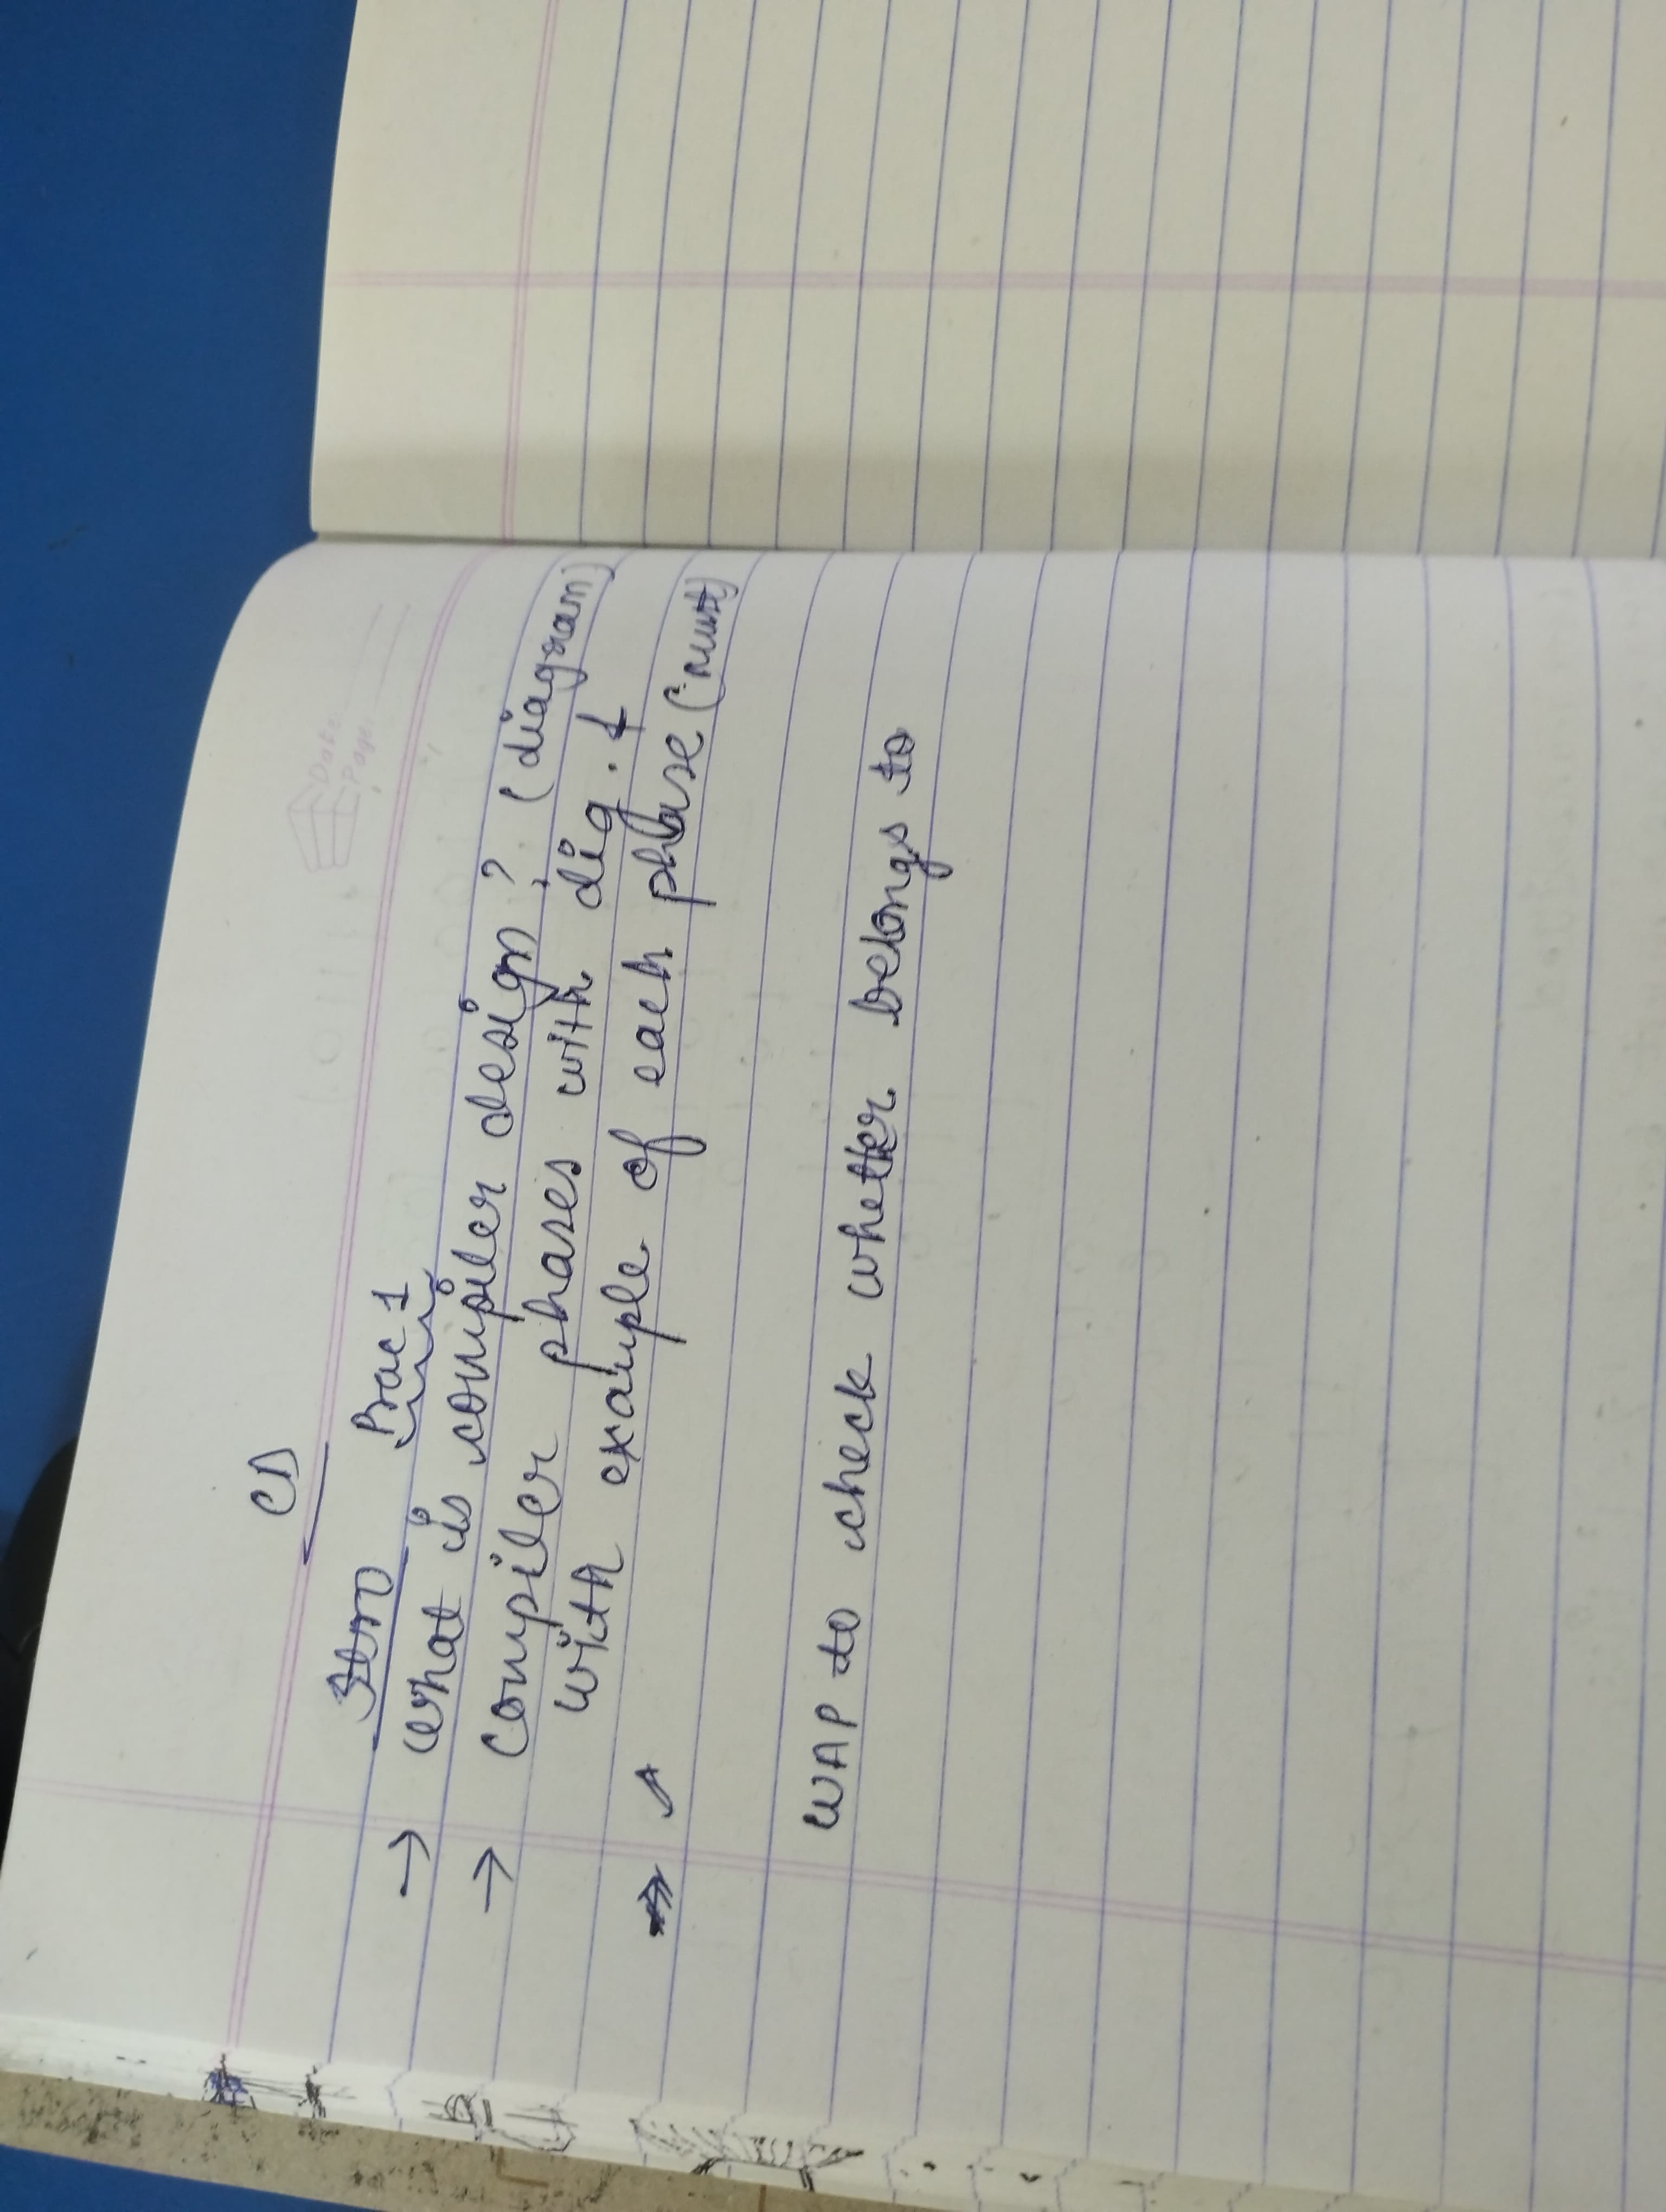 CD
Prac 1
→ what is compiler design? (diagram)
→ Compiler phases with dig. &
with example of each phase (must)
WAP to check whether belongs to
Date:
Page: